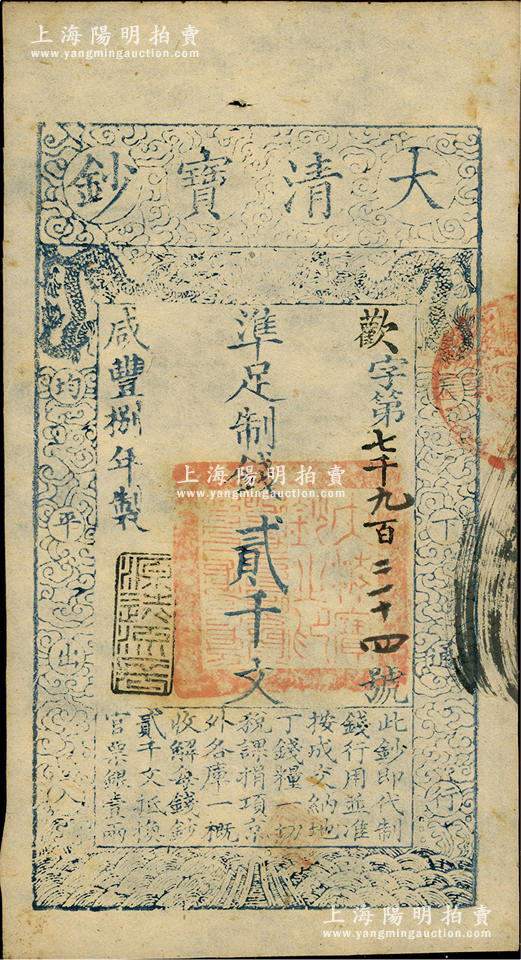 上海陽明拍賣
www.yangmingauction.com
大清寶鈔
歡字第七千九百二十四號
準足制錢貳千文
咸豐捌年製
均平出入
行
上海陽明拍賣
www.yangmingauction.com
此鈔即代制
錢行用並准
按成交納地
丁錢糧一切
稅課捐項京
外各庫一概
收解每錢鈔
貳千文抵換
官票銀壹兩
上海陽明拍賣
www.yangmingauction.com